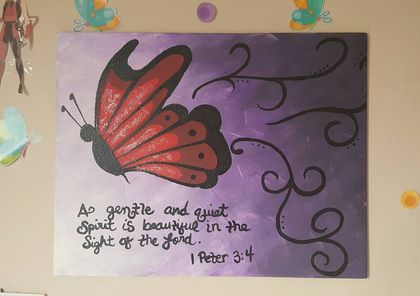 A gentle and quiet
Spirit is beautiful in the
Sight of the Lord.
1 Peter 3:4